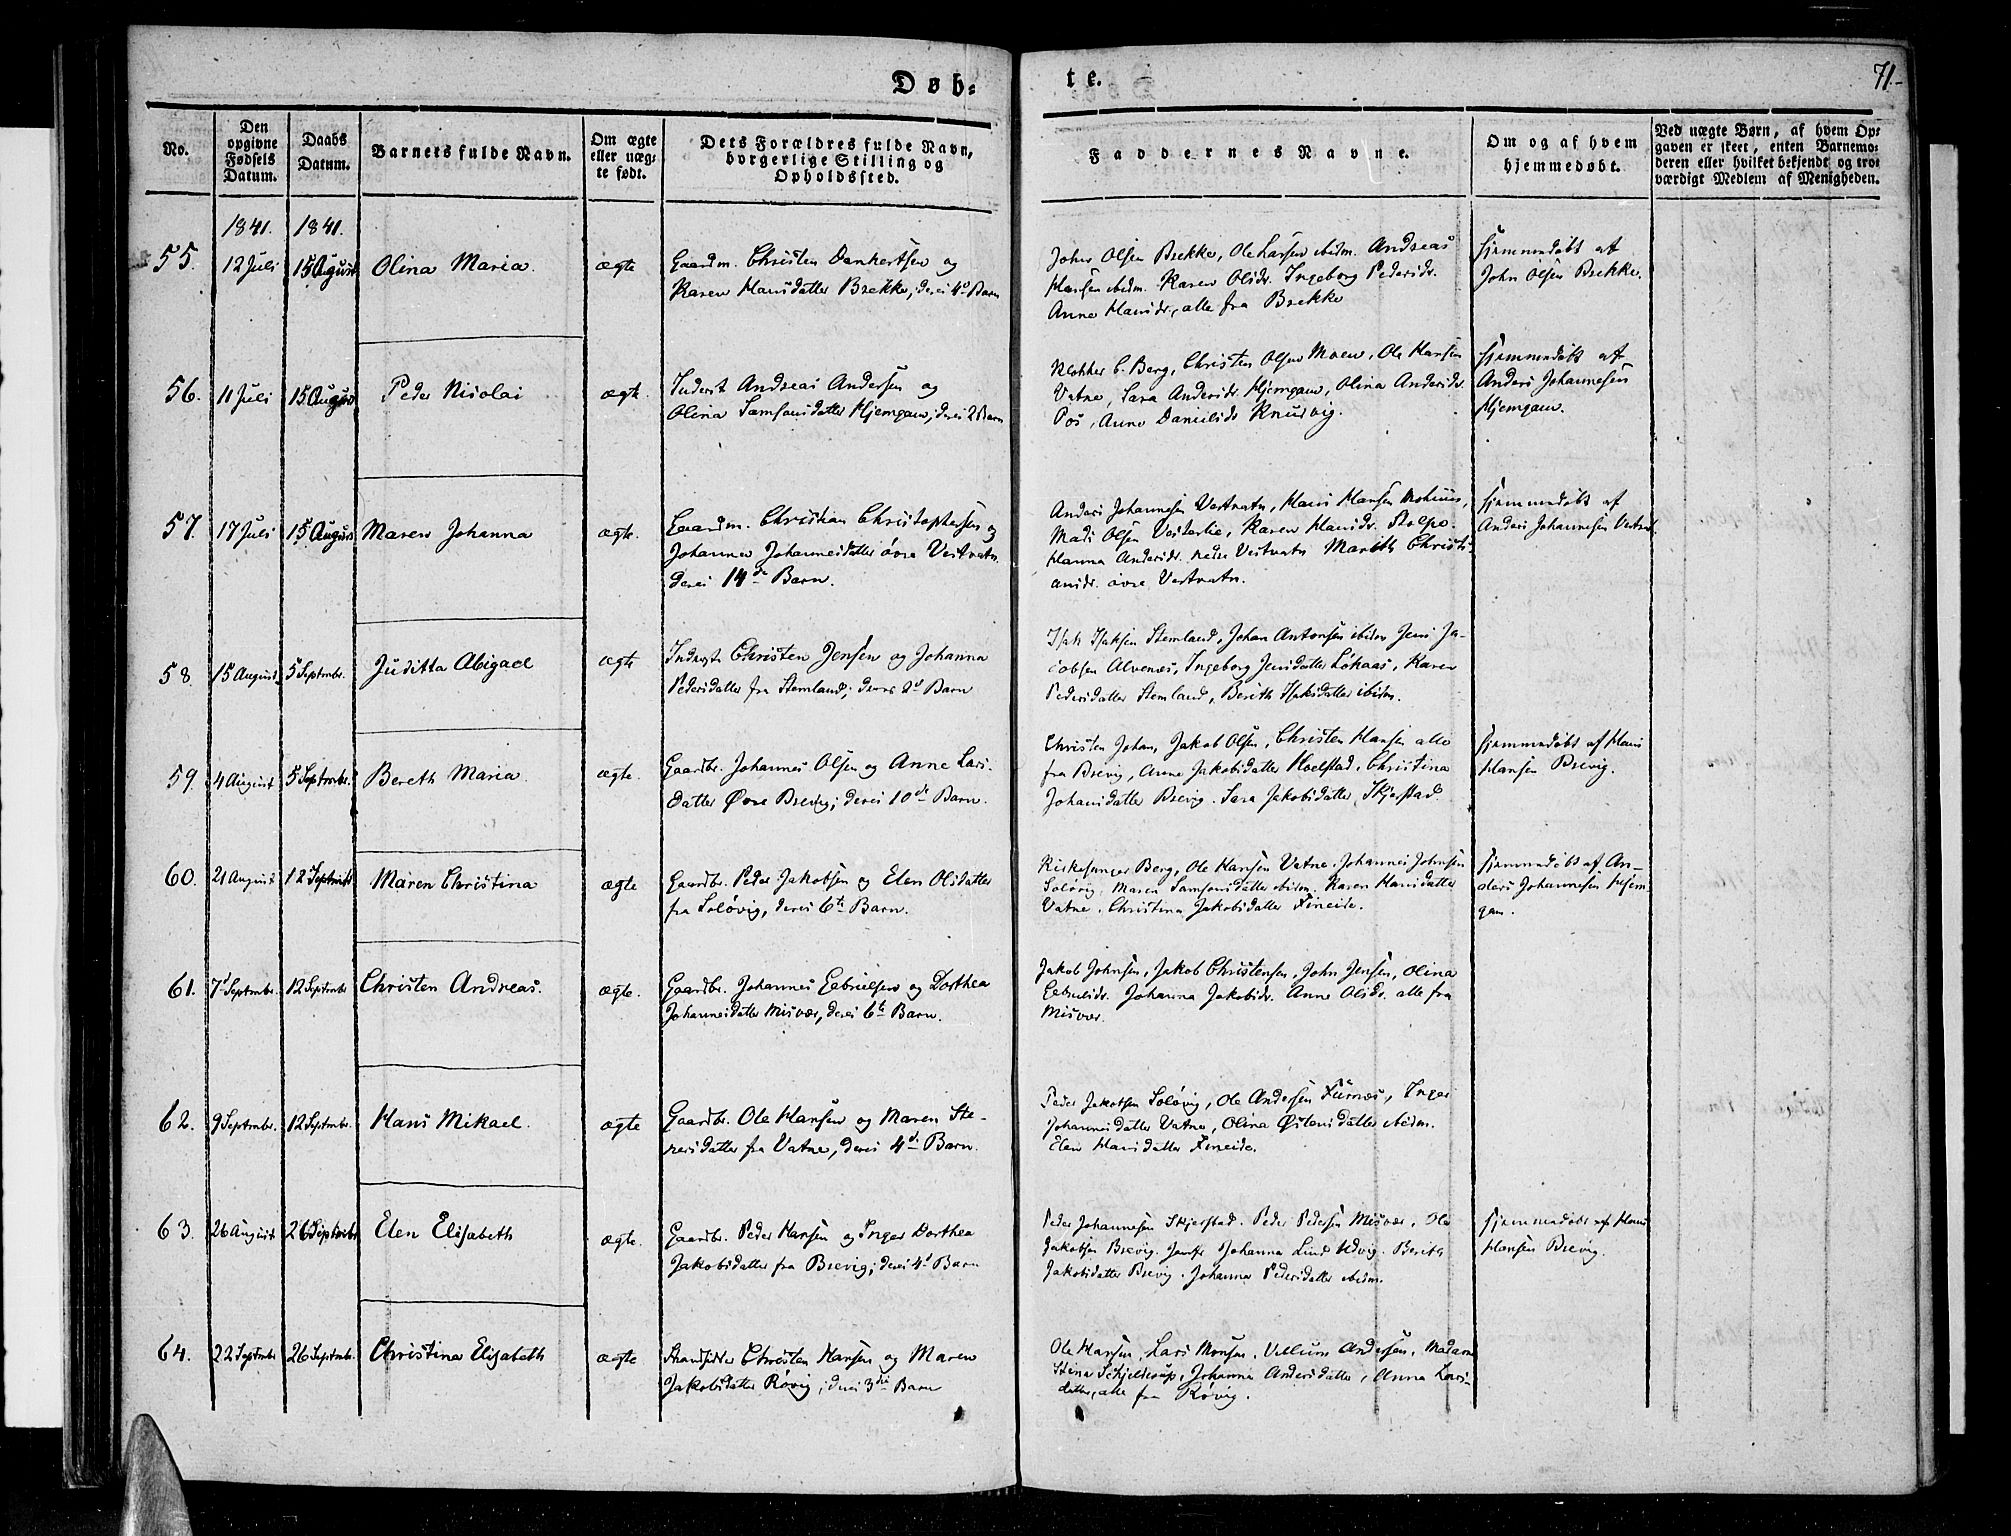 Døb=
te.
71.-
No.
Den opgivne Fødsels Datum.
Daabs Datum.
Barnets fulde Navn.
Om ægte eller uæg= te født.
Dets Forældres fulde Navn, borgerlige Stilling og Opholdssted.
Faddernes Navne.
Om og af hvem hjemmedøbt.
Ved uægte Børn, af hvem Op= gaven er skeet, enten Barnemo= deren eller hvilket bekjendt og tro= værdigt Medlem af Menigheden.
1841. 1841.
55. 12 Juli 15 August Olina Maria. ægte
Gaardm. Christen Dankertsen og
Karen Hansdatter Brekke, deres 4d Barn
John Olsen Brekke, Ole Larsen ibidm. Andreas
Hansen ibidm. Karen Olsdr. Ingeborg Pedersdr.
Anne Hansdr., alle fra Brekke
Hjemmedøbt af
John Olsen Brekke.
56. 11 Juli 15 August Peder Nicolai ægte.
Inderst Andreas Andersen og
Olina Samsonsdatter Hjemgam, deres 2 Barn
Klokker C. Berg, Christen Olsen Moen, Ole Hansen
Vatne, Sara Andersdr. Hjemgam, Olina Andersdr.
Pos, Anne Danielsdr Knudvig.
Hjemmedøbt af
Anders Johannesen
Hjemgam.
57. 17 Juli 15 August Maren Johanna ægte.
Gaardm. Christian Christophersen og
Johanna Johannesdatter øvre Vestvatn.
deres 14de Barn.
Anders Johannesen Vestvatn, Hans Hansen
Mads Olsen Vesterlie, Karen Hansdr. Stolpe.
Hanna Andersdr. nedre Vestvatn Marith Christi=
ansdr. øvre Vestvatn.
Hjemmedøbt af
Anders Johannesen Vestvat.
58. 15 August 5 Septmbr. Juditta Abigael ægte
Indersste Christen Jensen og Johanna
Pedersdatter fra Stemland; deres 2d Barn
Isak Isaksen Stemland, Johan Antonsen ibidm Jens Ja-
cobsen Alvenes, Ingeborg Jensdatter Løkaas, Karen
Pedersdatter Stemland, Berith Isaksdatter ibidm.
59. 4 August 5 Septembr. Bereth Maria. ægte.
Gaardbr. Johannes Olsen og Anne Lars-
datter Øvre Brevig; deres 10de Barn.
Christen Johan, Jakob Olsen, Christen Hansen alle
fra Brevig, Anne Jakobsdatter Hoelstad, Christina
Johansdatter Brevig. Sara Jakobsdatter, Skjerstad.
Hjemmedøbt af Hans
Hansen Brevig.
60. 21 August 12 Septmbr Maren Christina ægte
Gaardbr. Peder Jakobsen og Elen Olsdatter
fra Soløvig, deres 6te Barn.
Kirkesanger Berg, Ole Hansen Vatne, Johannes Johnsen
Soløvig. Maren Samsonsdatter ibidm. Karen Hansdatter
Vatne. Christina Jakobsdatter Fineide.
Hjemmedøbt af An-
ders Johannesen Hjem
gam.
61. 7 Septmbr. 12 Septmbr Christen Andreas. ægte.
Gaardbr. Johannes Gabrielsen og Dorthea
Johannesdatter Misvær, deres 6te Barn.
Jakob Johnsen, Jakob Christensen, John Jensen, Olina
Gabrielsdr. Johanna Jakobsdr. Anne Olsdr. alle fra
Misvær.
62. 9 Septmbr. 12 Septmbr. Hans Mikael. ægte
Gaardbr. Ole Hansen og Maren Ste-
nersdatter fra Vatne, deres 4de Barn.
Peder Jakobsen Soløvig, Ole Andersen Furnæs, Inger
Johannesdatter Vatne, Olina Østensdatter ibidm.
Elen Hansdatter Fineide.
63. 26 August 26 Septmbr Elen Elisabeth ægte.
Gaardbr. Peder Hansen og Inger Dorthea
Jakobsdatter fra Brevig; deres 4d Barn
Peder Johannesen Skjerstad. Peder Pedersen Misvær, Ole
Jakobsen Brevig. Jomfr Johanna Lind Udvig. Berith
Jakobsdatter Brevig. Johanna Pedersdatter ibidm.
Hjemmedøbt af Hans
Hansen Brevig.
64. 22 Septmbr 26 Septmbr. Christina Elisabeth ægte
Strandsidder Christen Hansen og Maren
Jakobsdatter Røvig; deres 3die Barn
Ole Hansen, Lars Monsen, Villum Andersen, Madame
Stina Schjelderup, Johanna Andersdatter, Anna Lars-
datter, alle fra Røvig.